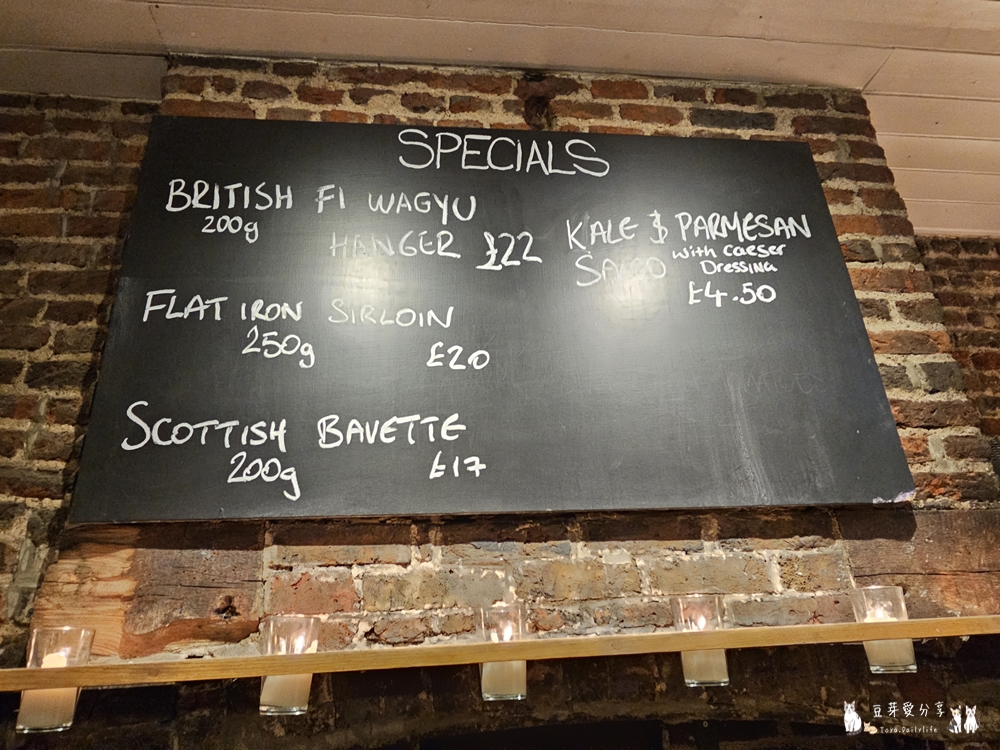 SPECIALS
BRITISH FI WAGYU
200g
HANGER £22
FLAT IRON SIRLOIN
250g £20
SCOTTISH BAVETTE
200g £17
KALE & PARMESAN
with caeser
Dressing
£4.50
豆芽愛分享
Toya.Dailylife